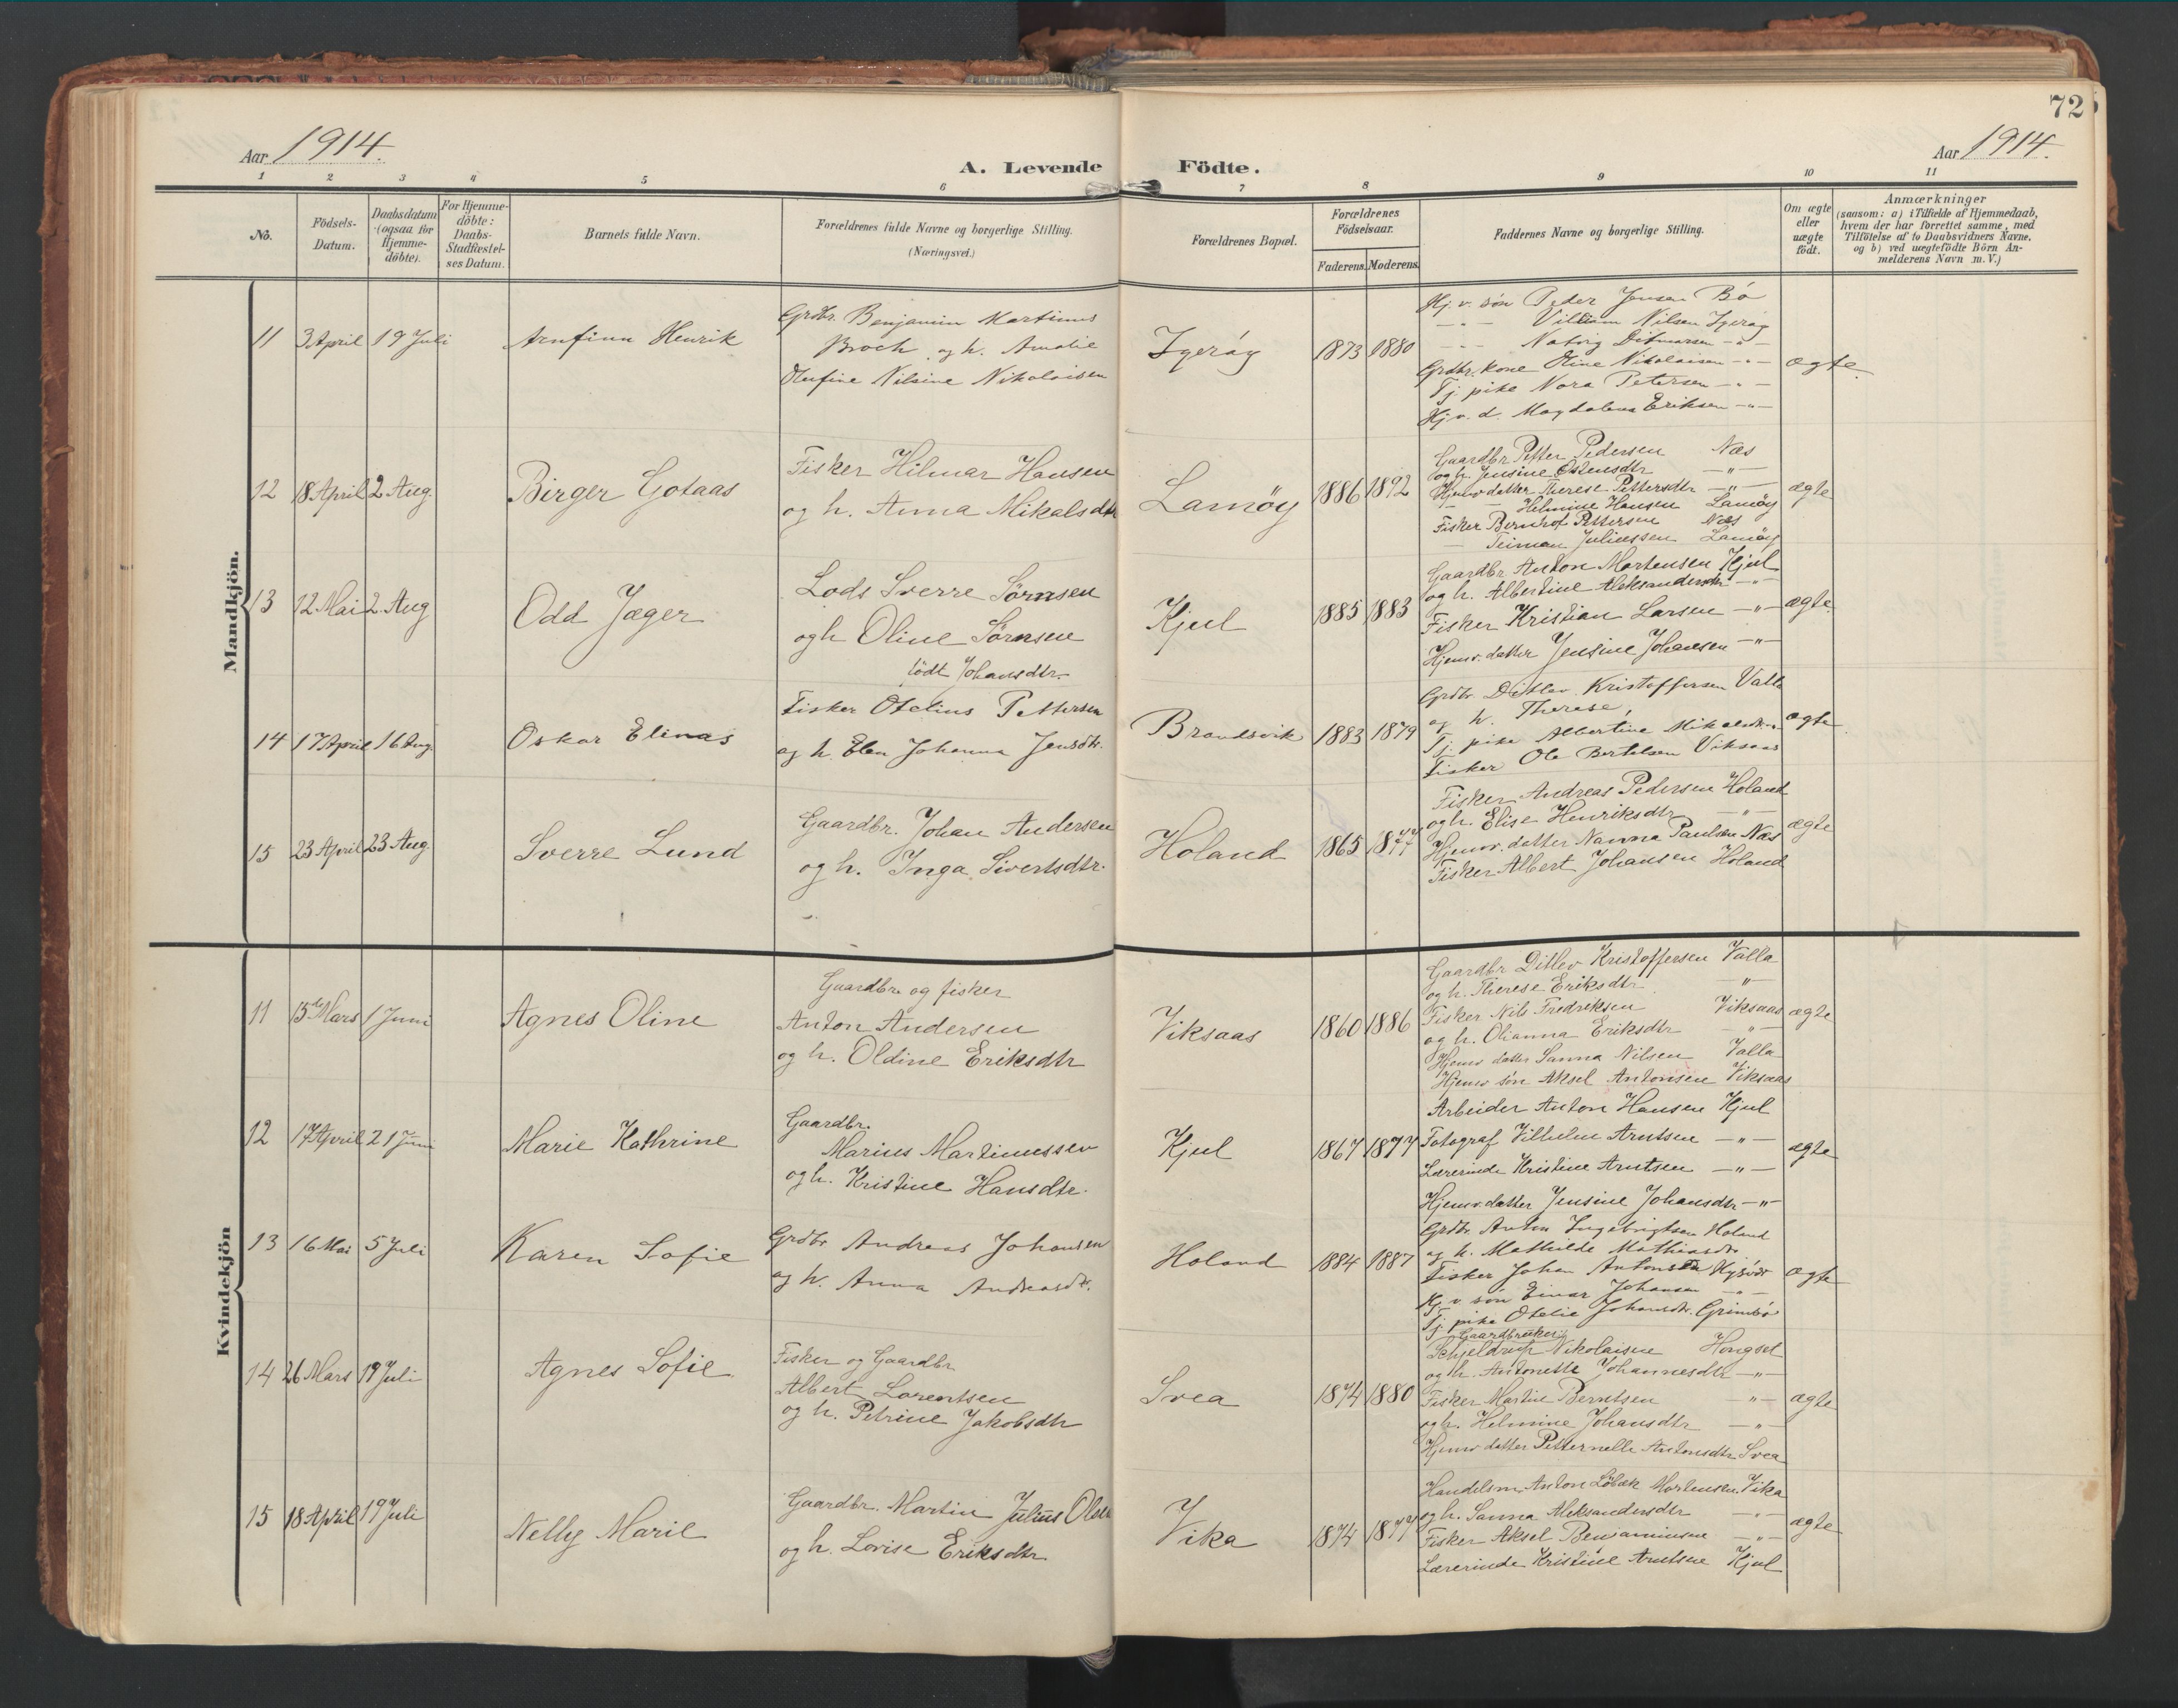 72
Aar 1914.
A. Levende Födte.
Aar 1914.
1 2 3 4 5 6 7 8 9 10 11
No.
Födsels-Datum.
Daabsdatum (ogsaa for Hjemme-döbte).
For Hjemme-döbte: Daabs-Stadfæstel-ses Datum.
Barnets fulde Navn.
Forældrenes fulde Navne og borgerlige Stilling. (Næringsvei.)
Forældrenes Bopæl.
Forældrenes Födselsaar.
Faderens. Moderens.
Faddernes Navne og borgerlige Stilling.
Om ægte eller uægte födt.
Anmærkninger
(saasom: a) i Tilfælde af Hjemmedaab,
hvem der har forrettet samme, med
Tilföielse af to Daabsvidners Navne,
og b) ved uægtefödte Börn An-
melderens Navn m. V.)
Mandkjön.
11 3 April 19 Juli Arnfinn Henrik
Grdbr. Benjamin Martinus
Broch og h. Amalie
Olufine Nilsine Nikolaisen
Igerøy 1873 1880
Hj. v. søn Peder Jensen Bø
— " — Villiam Nilsen Igerøy
— " — Ditmarsen — " —
Grdbr. kone Oline Nikolaisen — " —
Tj. pike Nora Petersen — " —
Hj. v. d. Magdalena Eriksen — " —
ægte.
12 18 April 2 Aug. Birger Gotaas
Fisker Hilmar Hansen
og h. Anna Mikalsdtr
Lamöy 1886 1892
Gaardbr Petter Pedersen Næs
og h. Jensine Ostensdtr — " —
Hjemv datter Therese Pettersdtr — " —
— Helmine Hansen Lamöy
Fisker Bernhof Pettersen Næs
— Juliussen Lamöy
ægte
13 12 Mai 2 Aug Odd Jæger
Lods Sverre Sørnsen
og h Oline Sørnsen
födt Johansdtr.
Kjul 1885 1883
Gaardbr Anton Martensen Kjul
og h. Albertine Aleksandersdtr — " —
Fisker Kristian Larsen — " —
Hjemv. datter Jensine Johansen — " —
ægte.
14 17 April 16 Aug. Oskar Elinas
Fisker Otelius Pettersen
og h. Elen Johanna Jensdtr.
Brandsvik 1883 1879
Grdbr. Ditlev Kristoffersen Valla
og h. Therese,
Tj. pike Albertine Mikalsdtr. "
Fisker Ole Bertelsen Viksaas
ægte
15 23 April 23 Aug Sverre Lund
Gaardbr. Johan Andersen
og h. Inga Sivertsdtr.
Holand 1865 1877
Fisker Andreas Pedersen Holand
og h. Elise Henriksdtr — " —
Hjemv. datter Nanna Paulsen Næs
Fisker Albert Johansen Holand
ægte
Kvindekjön
11 15de Mars 1 Juni Agnes Oline
Gaardbr og fisker
Anton Andersen
og h. Oldine Eriksdtr
Viksaas 1860 1886
Gaardbr Ditlev Kristoffersen Valla
og h. Therese Eriksdtr — " —
Fisker Nils Fredriksen Viksaas
og h. Olianna Eriksdtr — " —
Hjemv datter Sanna Nilsen Valla
Hjemv søn Aksel Antonsen Viksaas
ægte
12 17 April 21 Juni Marie Kathrine
Gaardbr.
Marius Martinussen
og h. Kristine Hansdtr.
Kjul 1867 1877
Arbeider Anton Hansen Kjul
Fotograf Vilhelm Arntsen — " —
Lærerinde Kristine Arntsen — " —
Hjemv. datter Jensine Johansdtr — " —
ægte
13 16 Mai 5 Juli Karen Sofie
Grdbr Andreas Johansen
og h. Anna Andreasdtr.
Holand 1884 1887
Grdbr. Anton Ingebrigtsen Holand
og h. Mathilde Mathiasdtr.
Fisker Johan Antonsen
Hj. v søn Einar Johansen — " —
Tj. pike Otelie Johansdtr. Grimsø
ægte
14 26 Mars 19 Juli Agnes Sofie
Fisker og Gaardbr
Albert Lorentsen
og h. Petrine Jakobsdtr
Svea 1874 1880
Gaardbruker
Schjeldrup Nikolaisen Hongset
og h. Antonette Johannesdtr — " —
Fisker Martin Berntsen — " —
og h. Helmine Johansdtr — " —
Hjemv datter Petternelle Antonsdtr Svea
ægte
15 18 April 19 Juli Nelly Marie
Gaardbr. Martin Julius Olsen
og h. Lovise Eriksdtr
Vika 1874 1877
Handelsm. Anton Löbæk Mortensen Vika
og h. Sanna Aleksandersdtr — " —
Fisker Aksel Benjaminsen — " —
Lærerinde Kristine Arntsen Kjul
ægte